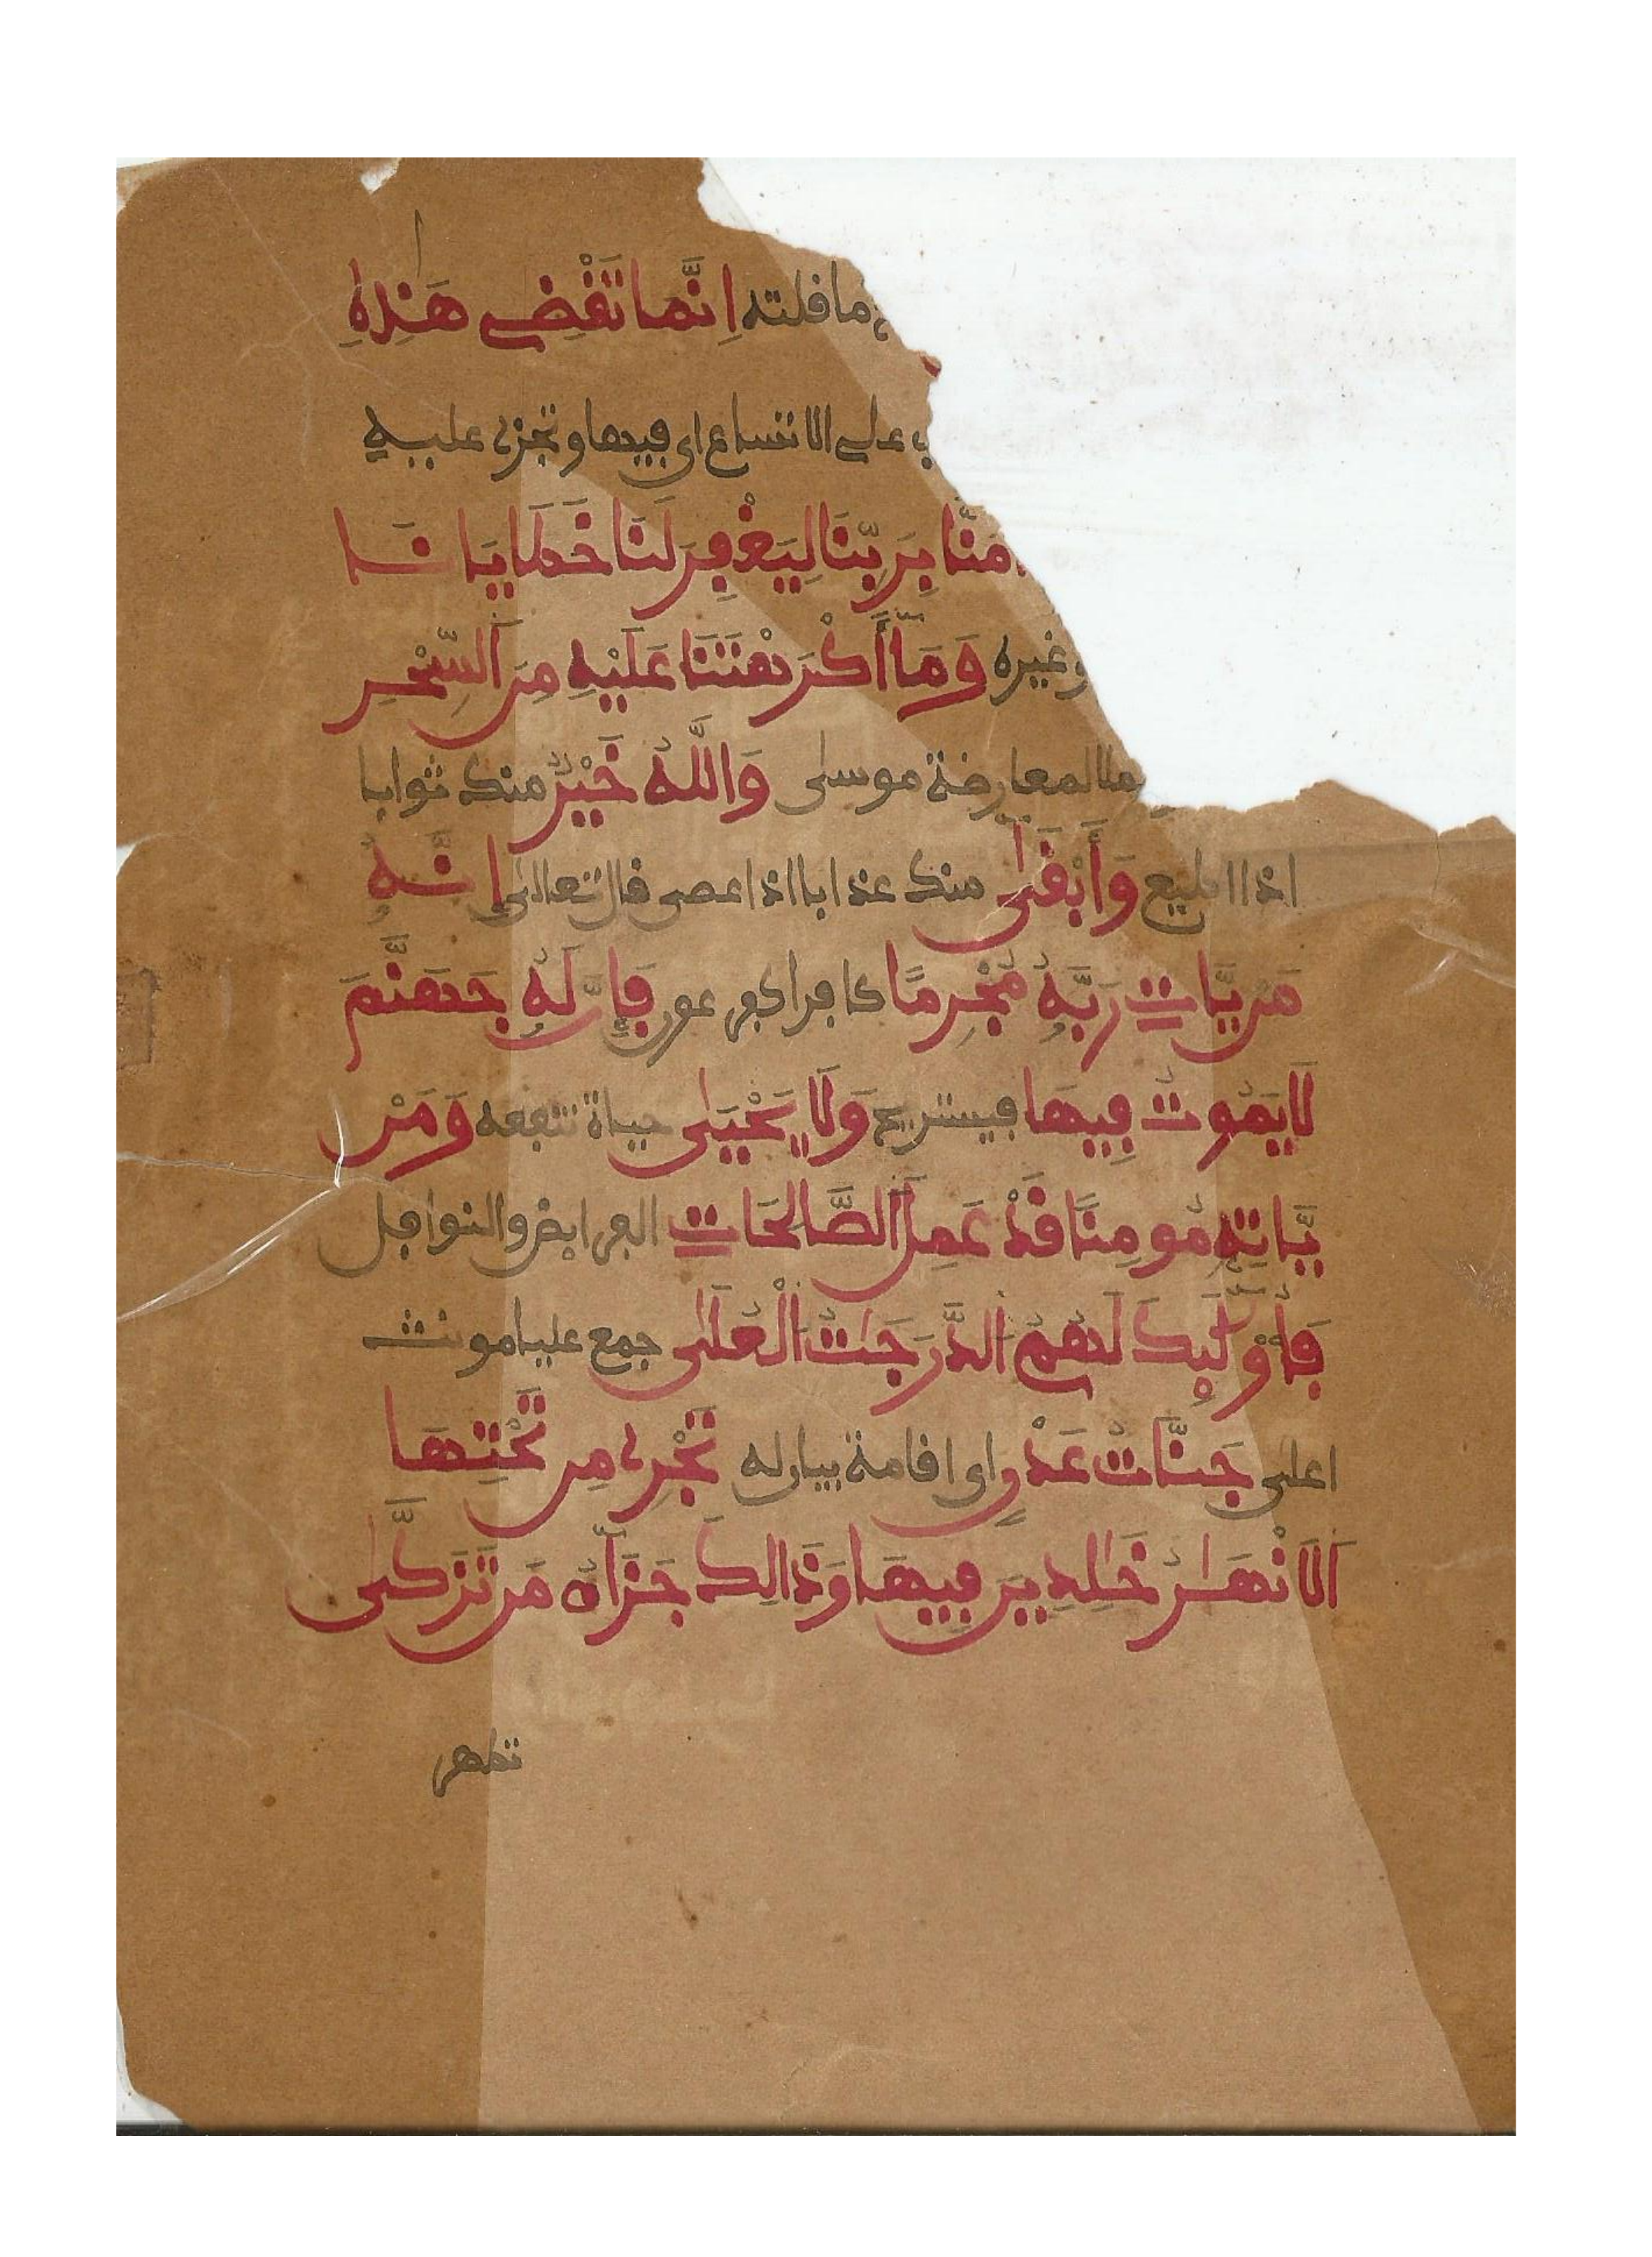 ما قلته اِنَّمَا تَقْضِے هَٰذِهِ
على الاتساع اى فيها وتجزى عليه
ءَامَنَّا بِرَبِّنَا لِيَغْفِرَ لَنَا خَطَايَانَا
وغيره وَمَآ أَكْرَهْتَنَا عَلَيْهِ مِنَ اَلسِّحْرِ
لمعارضة موسى وَاللَّهُ خَيْرٌ منك ثوابا
اذا اطيع وَأَبْقَىٰ منك عذابا اذا عصى قال تعالى إِنَّهُ
مَنْ يَّاتِ رَبَّهُ مُجْرِمًا كافرا كفرعون فَإِنَّ لَهُ جَهَنَّمَ
لَا يَمُوتُ فِيهَا فيستريح وَلَا يَحْيَىٰ حياة تنفعه وَمَنْ
يَّاتِهِ مُومِنًا قَدْ عَمِلَ اَلصَّالِحَاتِ الفرايض والنوافل
فَأُوْلَٰٓئِكَ لَهُمُ اَلدَّرَجَٰتُ اَلْعُلَىٰ جمع عليا مونث
اعلى جَنَّاتُ عَدْنٍ اى اقامة بيان له تَجْرِے مِن تَحْتِهَا
اَلَانْهَٰرُ خَٰلِدِينَ فِيهَا وَذَالِكَ جَزَآءُ مَن تَزَكَّىٰ
تطهر